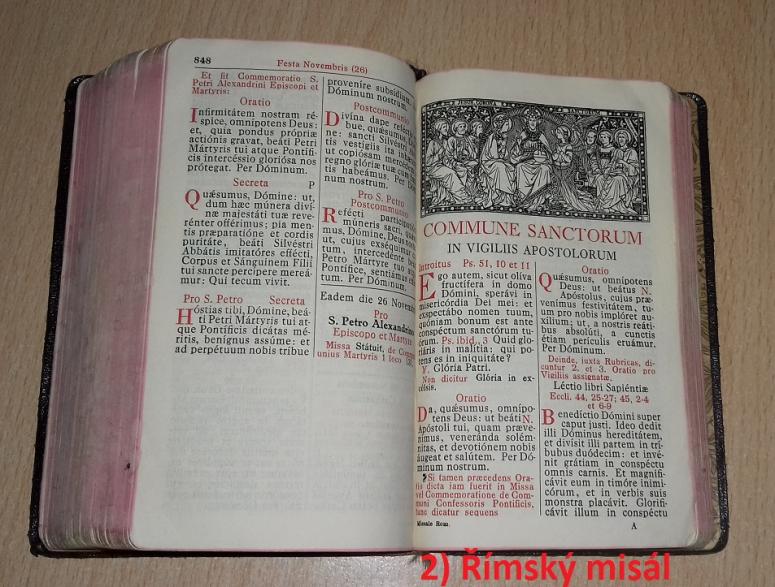 848
Festa Novembris (26)
Et fit Commemoratio S.
Petri Alexandrini Episcopi et
Martyris:
Oratio
Infirmitátem nostram ré-
spice, omnípotens Deus:
et, quia pondus própriæ
actiónis gravat, beáti Petri
Mártyris tui atque Pontífi-
cis intercéssio gloriósa nos
prótegat. Per Dóminum.
Secreta P
Quǽsumus, Dómine: ut,
dum hæc múnera diví-
næ majestáti tuæ reve-
rénter offérimus; pia men-
tis præparatióne et cordis
puritáte, beáti Silvéstri
Abbátis imitatóres effécti,
Corpus et Sánguinem Fílii
tui sancte percípere mereá-
mur: Qui tecum vivit.
Pro S. Petro Secreta
Hóstias tibi, Dómine, beá-
ti Petri Mártyris tui at-
que Pontíficis dicátas mé-
ritis, benígnus assúme: et
ad perpétuum nobis tríbue
proveníre subsídium.
Dóminum nostrum.
Postcommunio
Divína dape reféctis
bue, quǽsumus, Dó
ne: sancti Silvéstri Ab
tis vestígia ita
ut copiósam mercéd
regno glóriæ tuæ cum
tis habeámus. Per Dó
num nostrum.
Pro S. Petro
Postcommunio
Refécti participatió
múneris sacri, quǽ
mus, Dómine, Deus no
ut, cujus exséquimur
tum, intercedénte beá
Petro Mártyre tuo at
Pontífice, sentiámus effé
tum. Per Dóminum.
Eadem die 26 Novem
Pro
S. Petro Alexandrino
Episcopo et Martyre
Missa Státuit, de Com-
unius Martyris 1 loco
SANCTORUM
COMMUNE SANCTORUM
IN VIGILIIS APOSTOLORUM
Introitus Ps. 51, 10 et 11
Ego autem, sicut olíva
fructífera in domo
Dómini, sperávi in
misericórdia Dei mei: et
exspectábo nomen tuum,
quóniam bonum est ante
conspéctum sanctórum tu-
órum. Ps. ibid., 3 Quid glo-
riáris in malítia: qui po-
tens es in iniquitáte?
℣. Glória Patri.
Non dicitur Glória in ex-
célsis.
Oratio
Da, quǽsumus, omnípo-
tens Deus: ut beáti N.
Apóstoli tui, quam præve-
nímus, veneránda solém-
nitas, et devotiónem nobis
áugeat et salútem. Per Dó-
minum nostrum.
Si tamen præcedens Ora-
tio dicta jam fuerit in Missa
vel Commemoratione de Com-
muni Confessoris Pontificis,
tunc dicatur sequens
Missale Rom.
Oratio
Quǽsumus, omnípotens
Deus: ut beátus N.
Apóstolus, cujus præ-
venímus festivitátem, tu-
um pro nobis implóret au-
xílium; ut, a nostris reáti-
bus absolúti, a cunctis
étiam perículis eruámur.
Per Dóminum.
Deinde, juxta Rubricas, di-
cuntur 2. et 3. Oratio pro
Vigiliis assignatæ.
Léctio libri Sapiéntiæ
Eccli. 44, 25-27; 45, 2-4
et 6-9
Benedíctio Dómini super
caput justi. Ideo dedit
illi Dóminus hereditátem,
et divísit illi partem in trí-
bubus duódecim: et invé-
nit grátiam in conspéctu
omnis carnis. Et magnifi-
cávit eum in timóre inimi-
córum, et in verbis suis
monstra placávit. Glorifi-
cávit illum in conspéctu
A
2) Římský misál